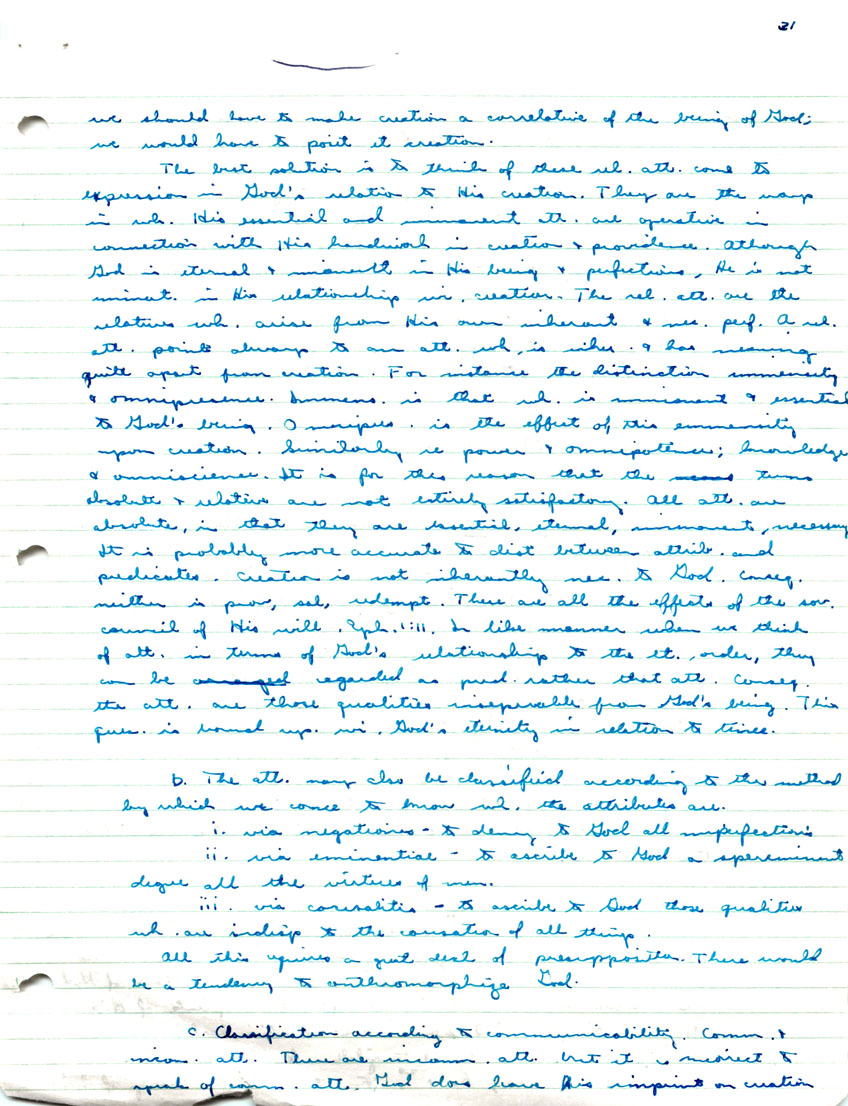 21
we should have to make creation a correlative of the being of God;
we would have to posit it creation.
The best solution is to think of these rel. att. come to
expression in God's relation to His creation. They are the ways
in wh. His essential and immanent att. are operative in
connection with His handiwork in creation & providence. Although
God is eternal & in His being & perfections, He is not
in His relationship wi. creation. The rel. att. are the
relatives wh. arise from His own inherant & nec. perf. A rel.
att. points always to an att. wh. is inher. & has meaning
quite apart from creation. For instance the distinction immensity
& omnipresence. Immens. is that wh. is immanent & essential
to God's being. Omnipres. is the effect of this emmensity
upon creation. Similarly re power & omnipotence; knowledge
& omniscience. It is for this reason that the terms
absolute & relative are not entirely satisfactory. All att. are
absolute, in that they are essential, eternal, immanent, necessary
It is probably more accurate to dist between attrib. and
predicates. Creation is not inherantly nec. to God. Conseq.
neither is prov, sal, redempt. These are all the effects of the sov.
council of His will. Eph. 1:11. In like manner when we think
of att. in terms of God's relationship to the order, they
can be regarded as pred. rather that att. Conseq.
the att. are those qualities inseperable from God's being. This
ques. is bound up. wi. God's eternity in relation to time.
b. The att. may also be classified according to the method
by which we come to know wh. the attributes are.
i. via negationes - to deny to God all imperfections
ii. via eminentiae - to ascribe to God aspereminent
degree all the virtues of men.
iii. via causalitis - to ascribe to God those qualities
wh. are indisp to the causation of all things.
All this requires a great deal of presupposition. There would
be a tendency to anthromorphize God.
c. Classification according to communicability. Comm. &
incom. att. There are incomm. att. but it is incorrect to
speak of comm. att. God does leave His imprint on creation